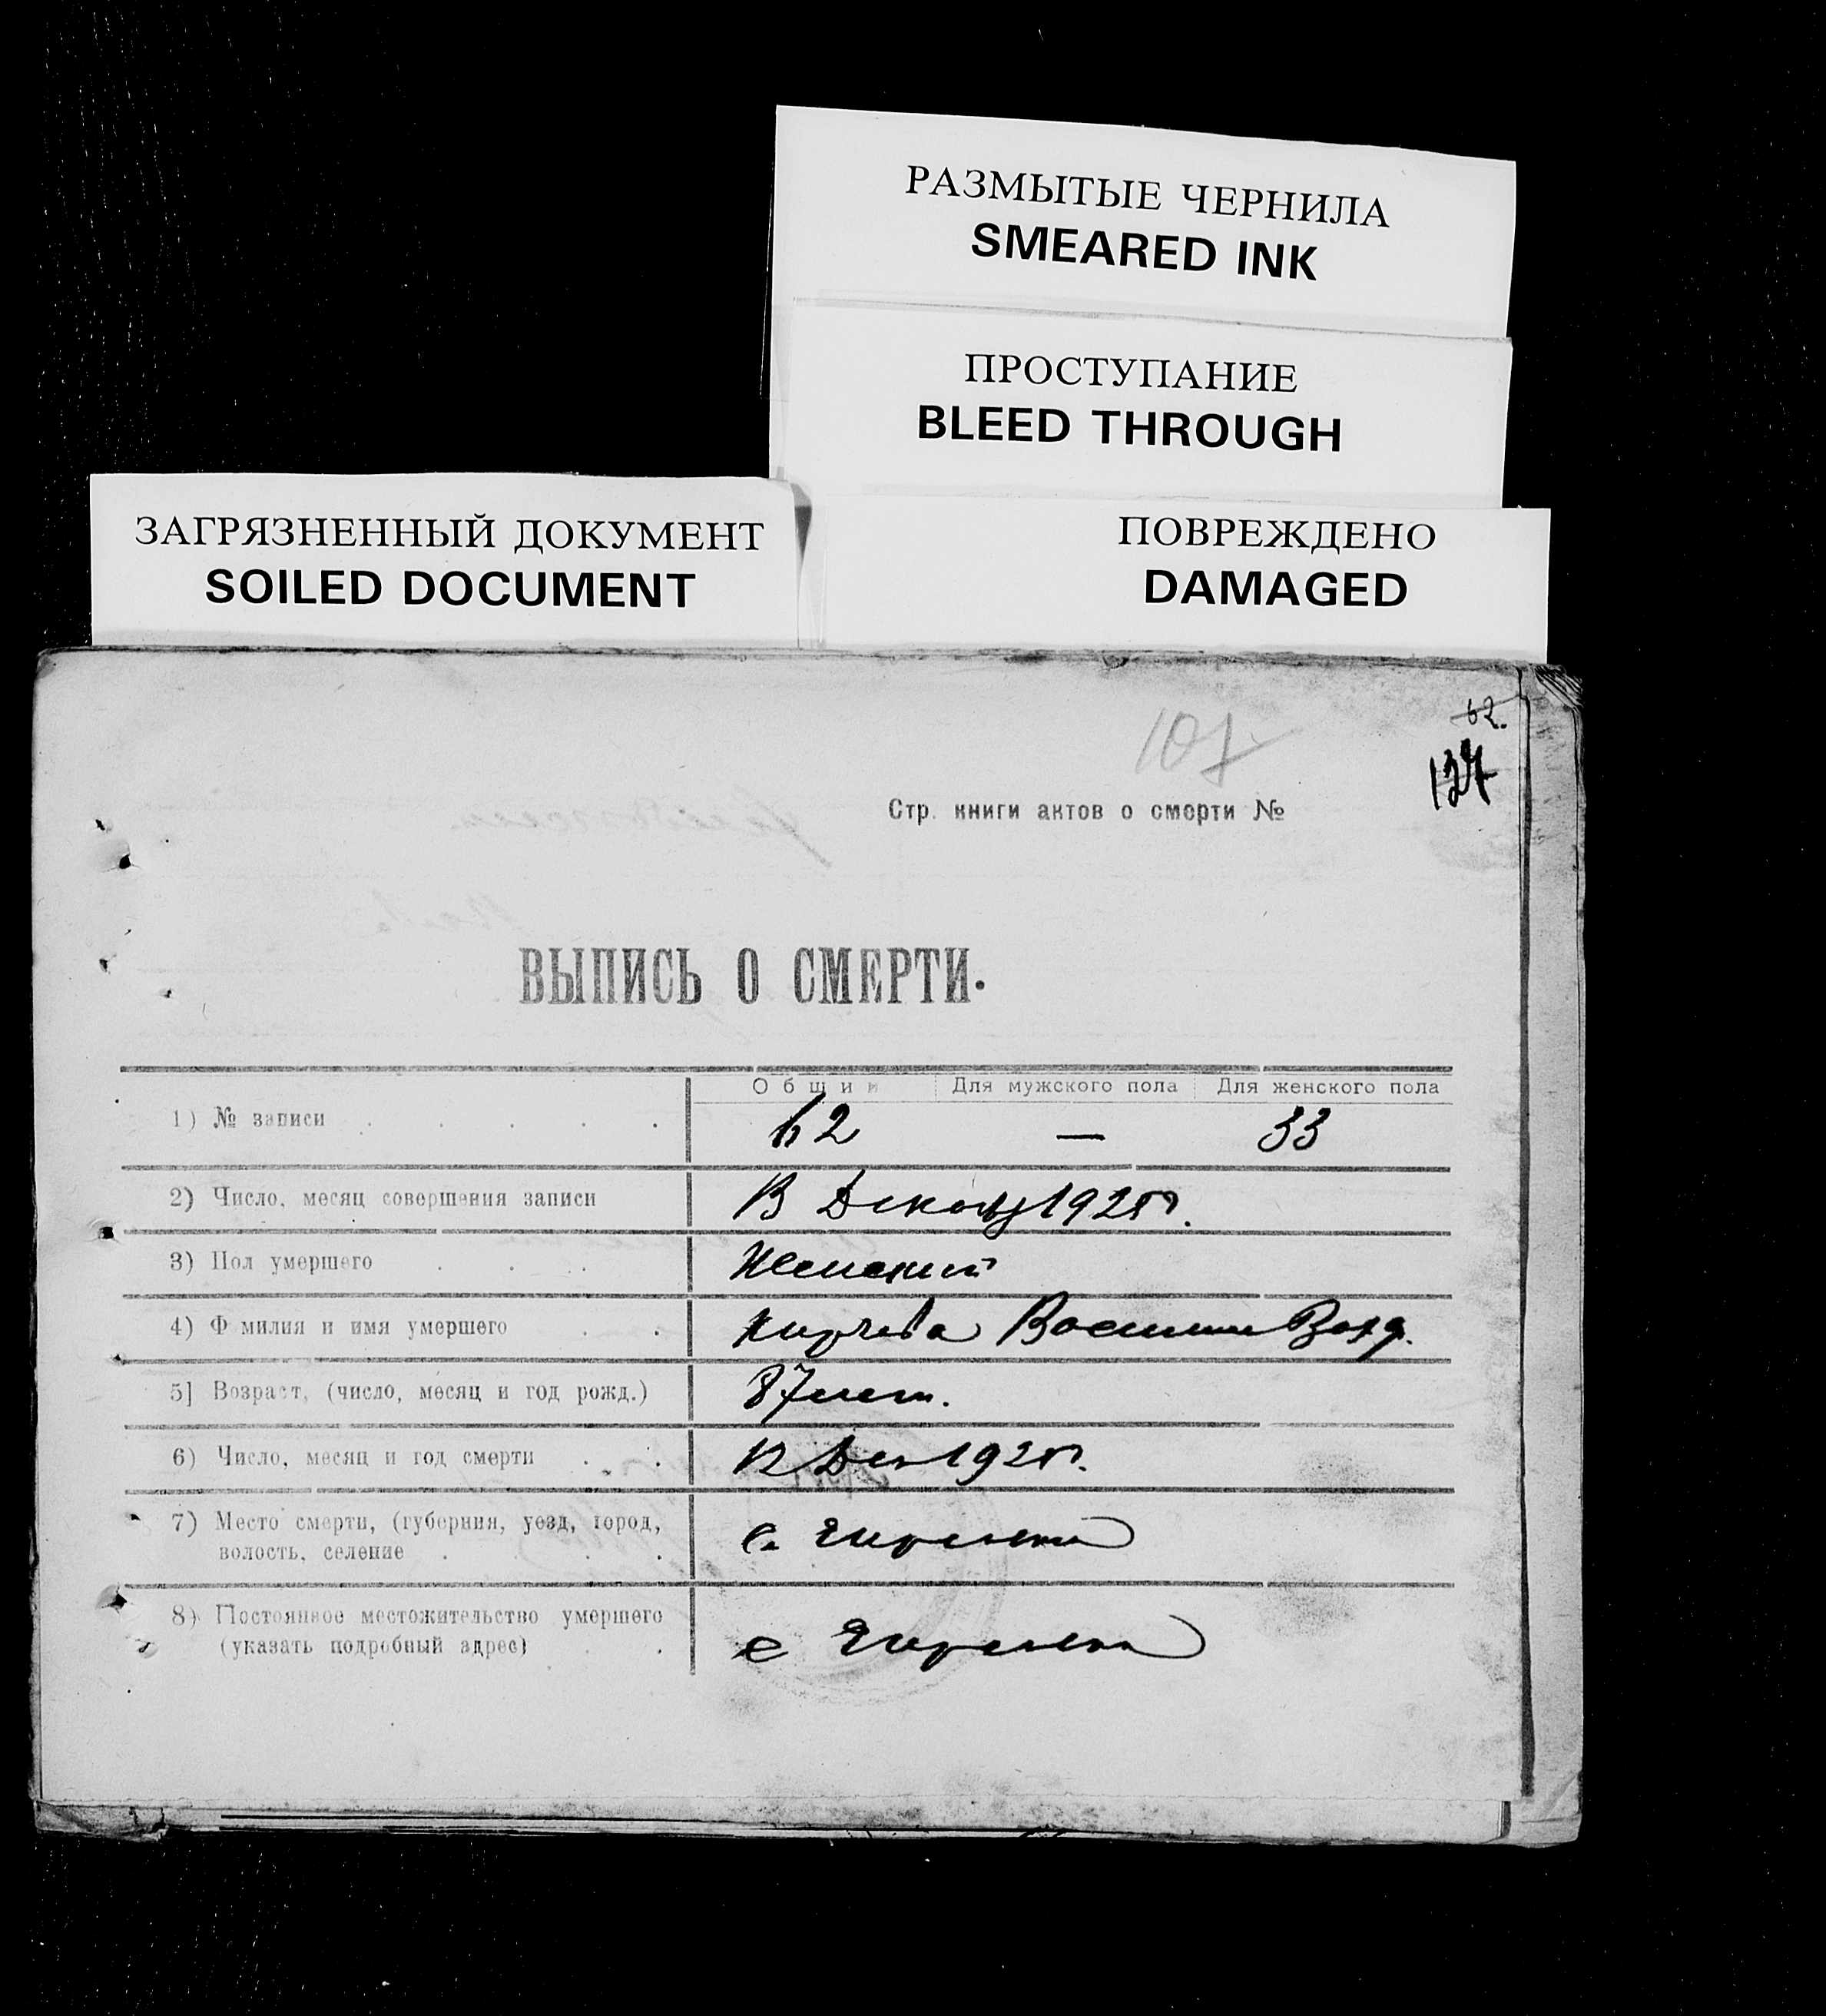 РАЗМЫТЫЕ ЧЕРНИЛА
SMEARED INK
ПРОСТУПАНИЕ
BLEED THROUGH
ЗАГРЯЗНЕННЫЙ ДОКУМЕНТ
SOILED DOCUMENT
ПОВРЕЖДЕНО
DAMAGED
62.
107
127
Стр. книги актов о смерти №
ВЫПИСЬ О СМЕРТИ.
Общий Для мужского пола Для женского пола
1) № записи 62 — 33
2) Число, месяц совершения записи 13
3) Пол умершего Женский
4) Ф милия и имя умершего
5] Возраст, (число, месяц и год рожд.) 87 лет.
6) Число, месяц и год смерти 12 Дек
7) Место смерти, (губерния, уезд, город,
волость, селение с.
8) Постоянное местожительство умершего
(указать подробный адрес) с